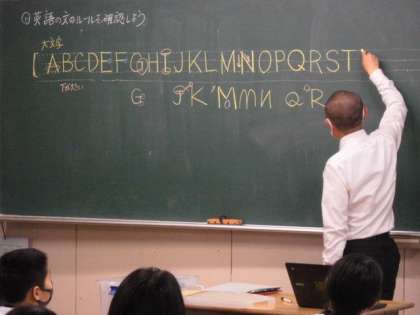 ①英語の文のルールを確認しよう
大文字
[ABCDEFGHIJKLMNOPQRST
G J K M M N Q R